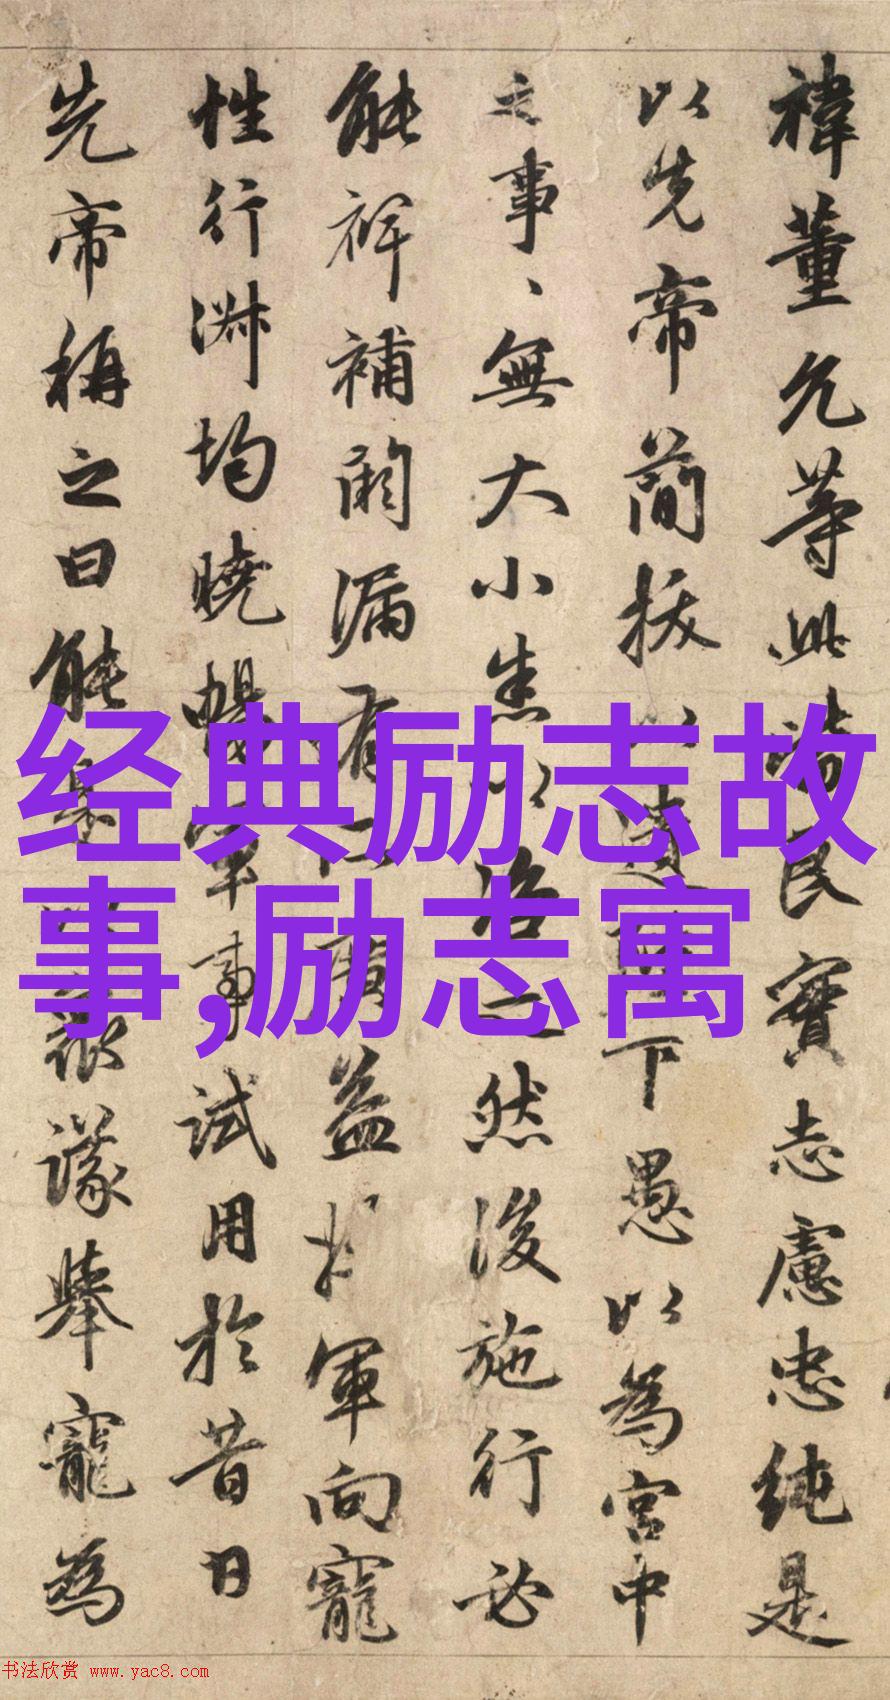 禕董允等此良實志慮忠純是
以先帝簡拔以遺陛下愚以為宮中
之事、無大小悉以咨之然後施行必
能裨補闕漏有所廣益將軍向寵
性行淑均曉暢軍事試用於昔日
先帝稱之曰能是以眾議舉寵為
经典励志故
事,励志寓
书法欣赏 www.yac8.com